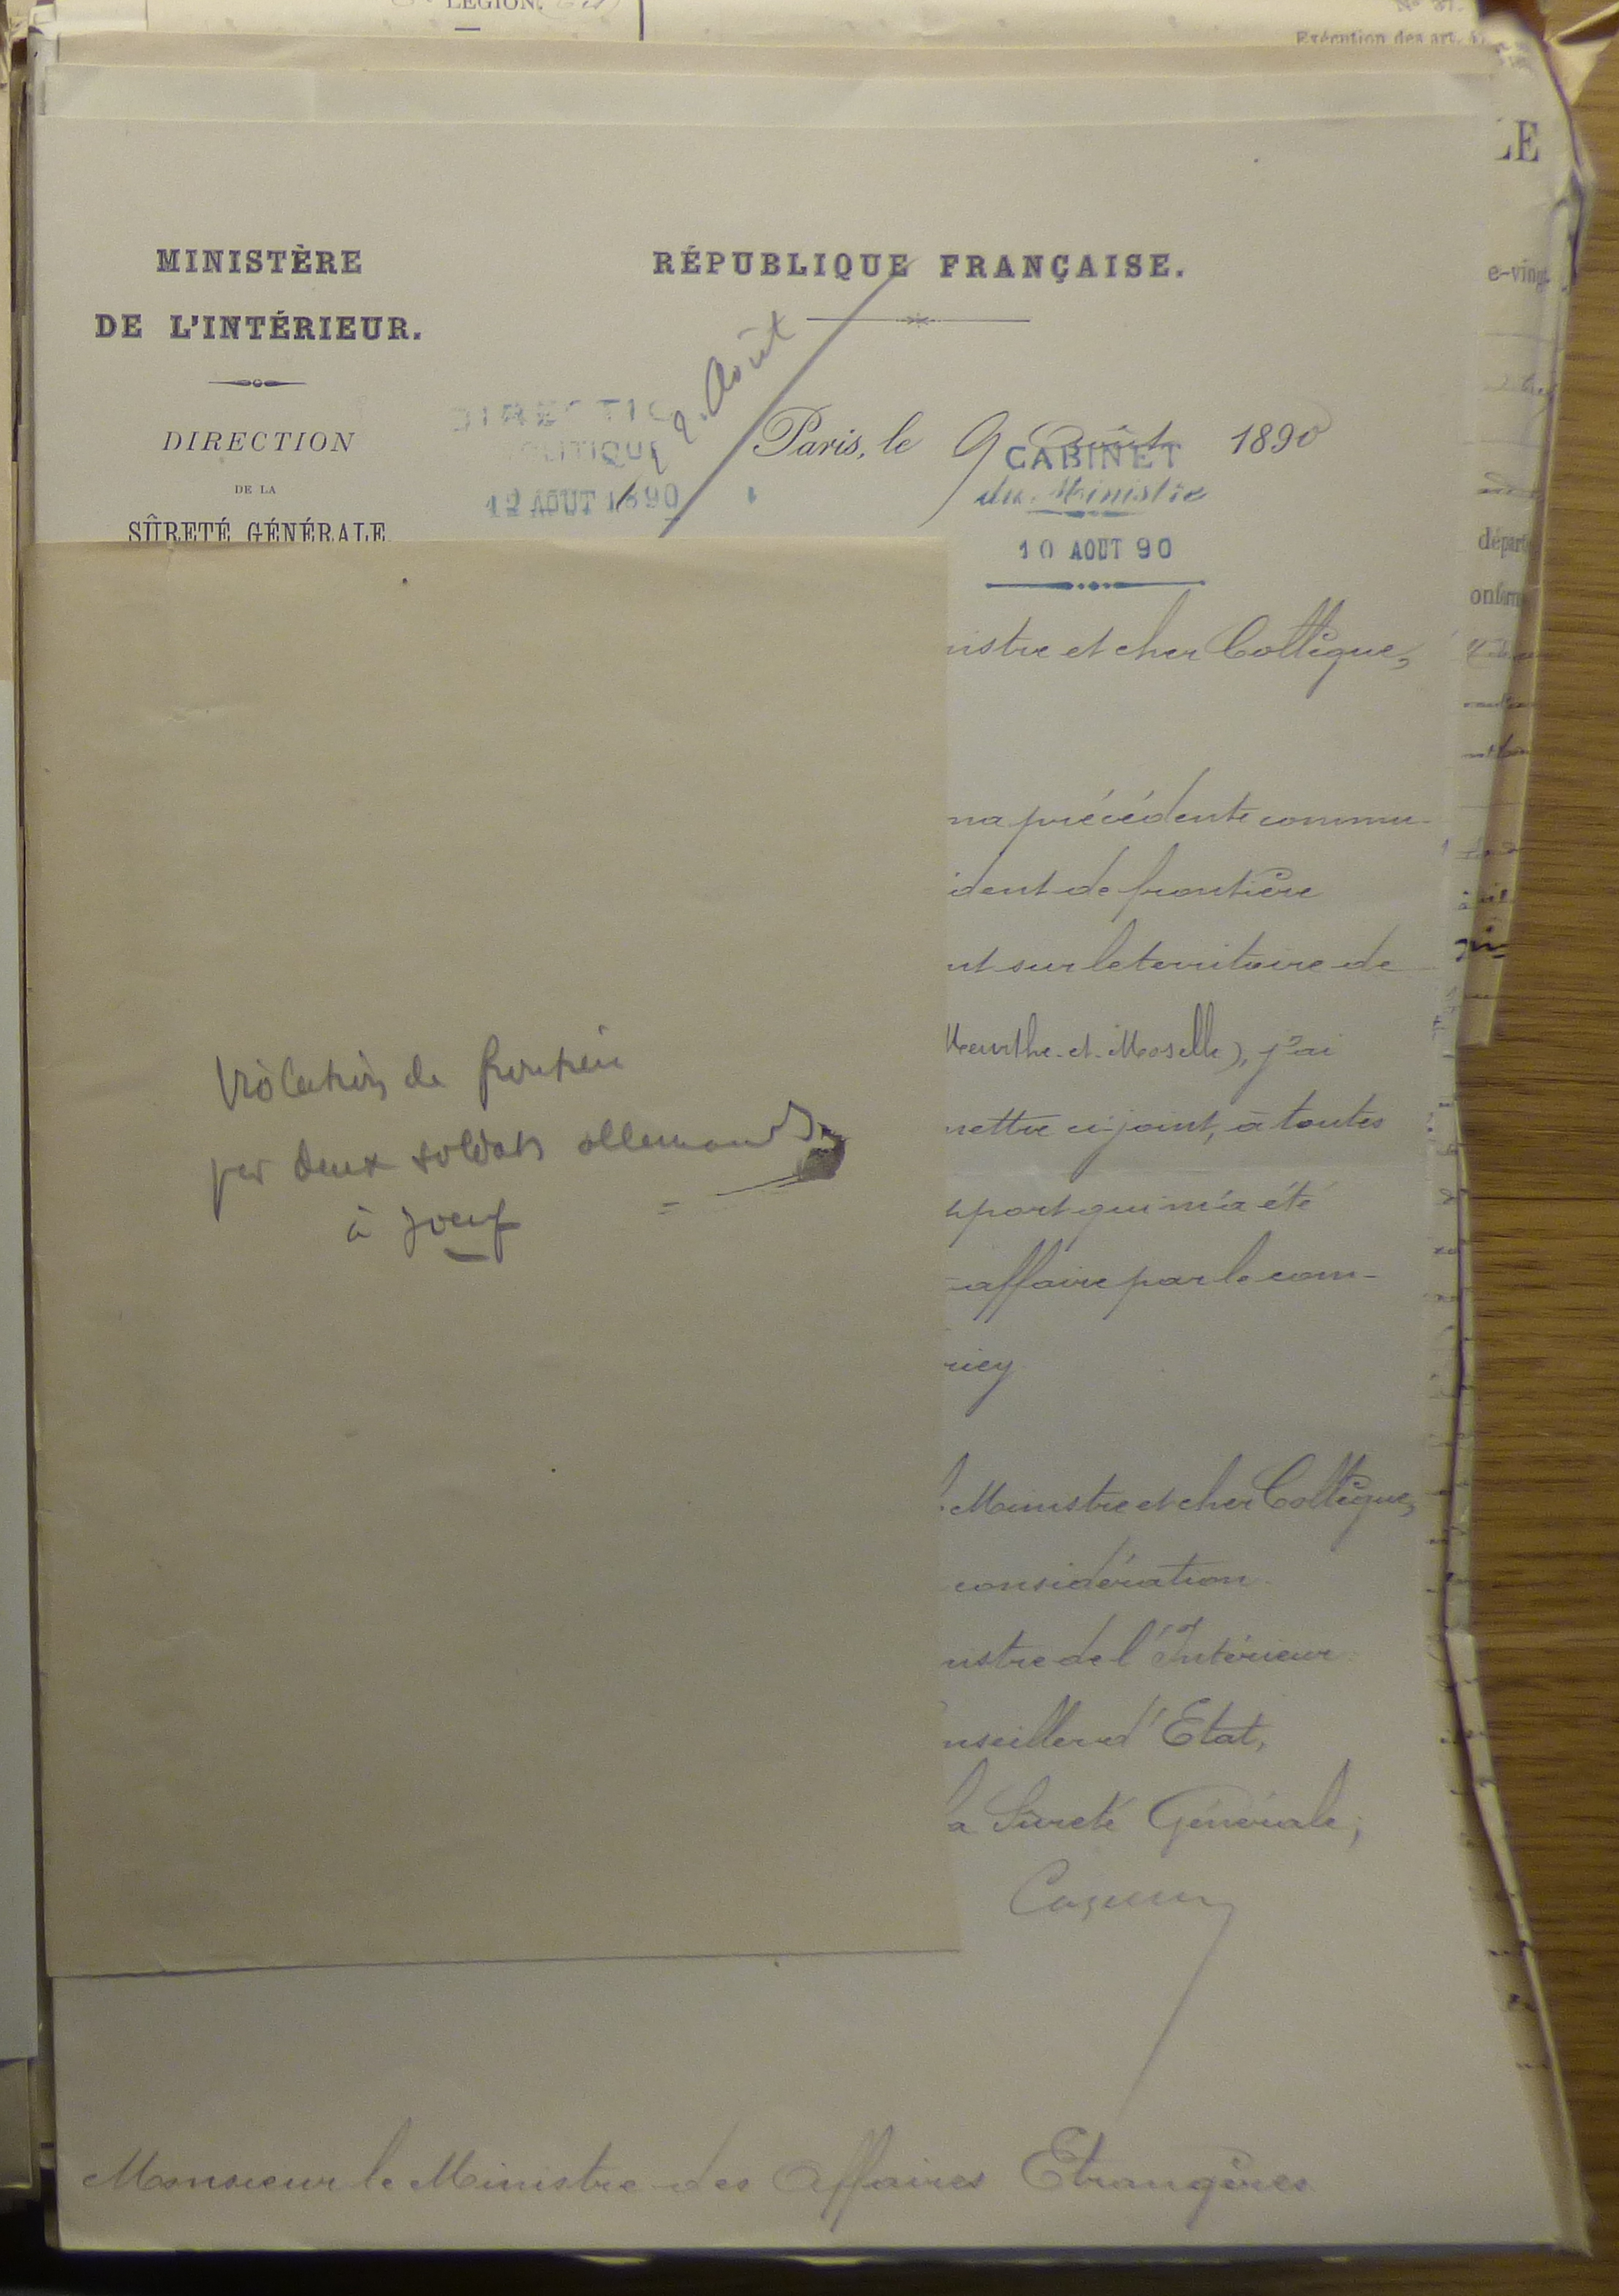 LÉGION.
Exécution des art.
LE
MINISTÈRE
DE L'INTÉRIEUR.
DIRECTION
DE LA
SÛRETÉ GÉNÉRALE
RÉPUBLIQUE FRANÇAISE.
Août
DIRECTIO
POLITIQUE
12 AOUT 1890
Paris, le 9 Août 1890
CABINET
du Ministre
10 AOUT 90
e-vingt
départe
nistre et cher Collègue,
ma précédente commu-
ident de frontière
nt sur le territoire de
Meurthe-et-Moselle), j'ai
mettre ci-joint, à toutes
apport qui m'a été
affaire par le com-
riey
Ministre et cher Collègue,
considération.
nistre de l'Intérieur
nseiller d'Etat,
la Sûreté Générale,
Violation de frontière
par deux soldats allemands
à Joeuf
Monsieur le Ministre des Affaires Etrangères